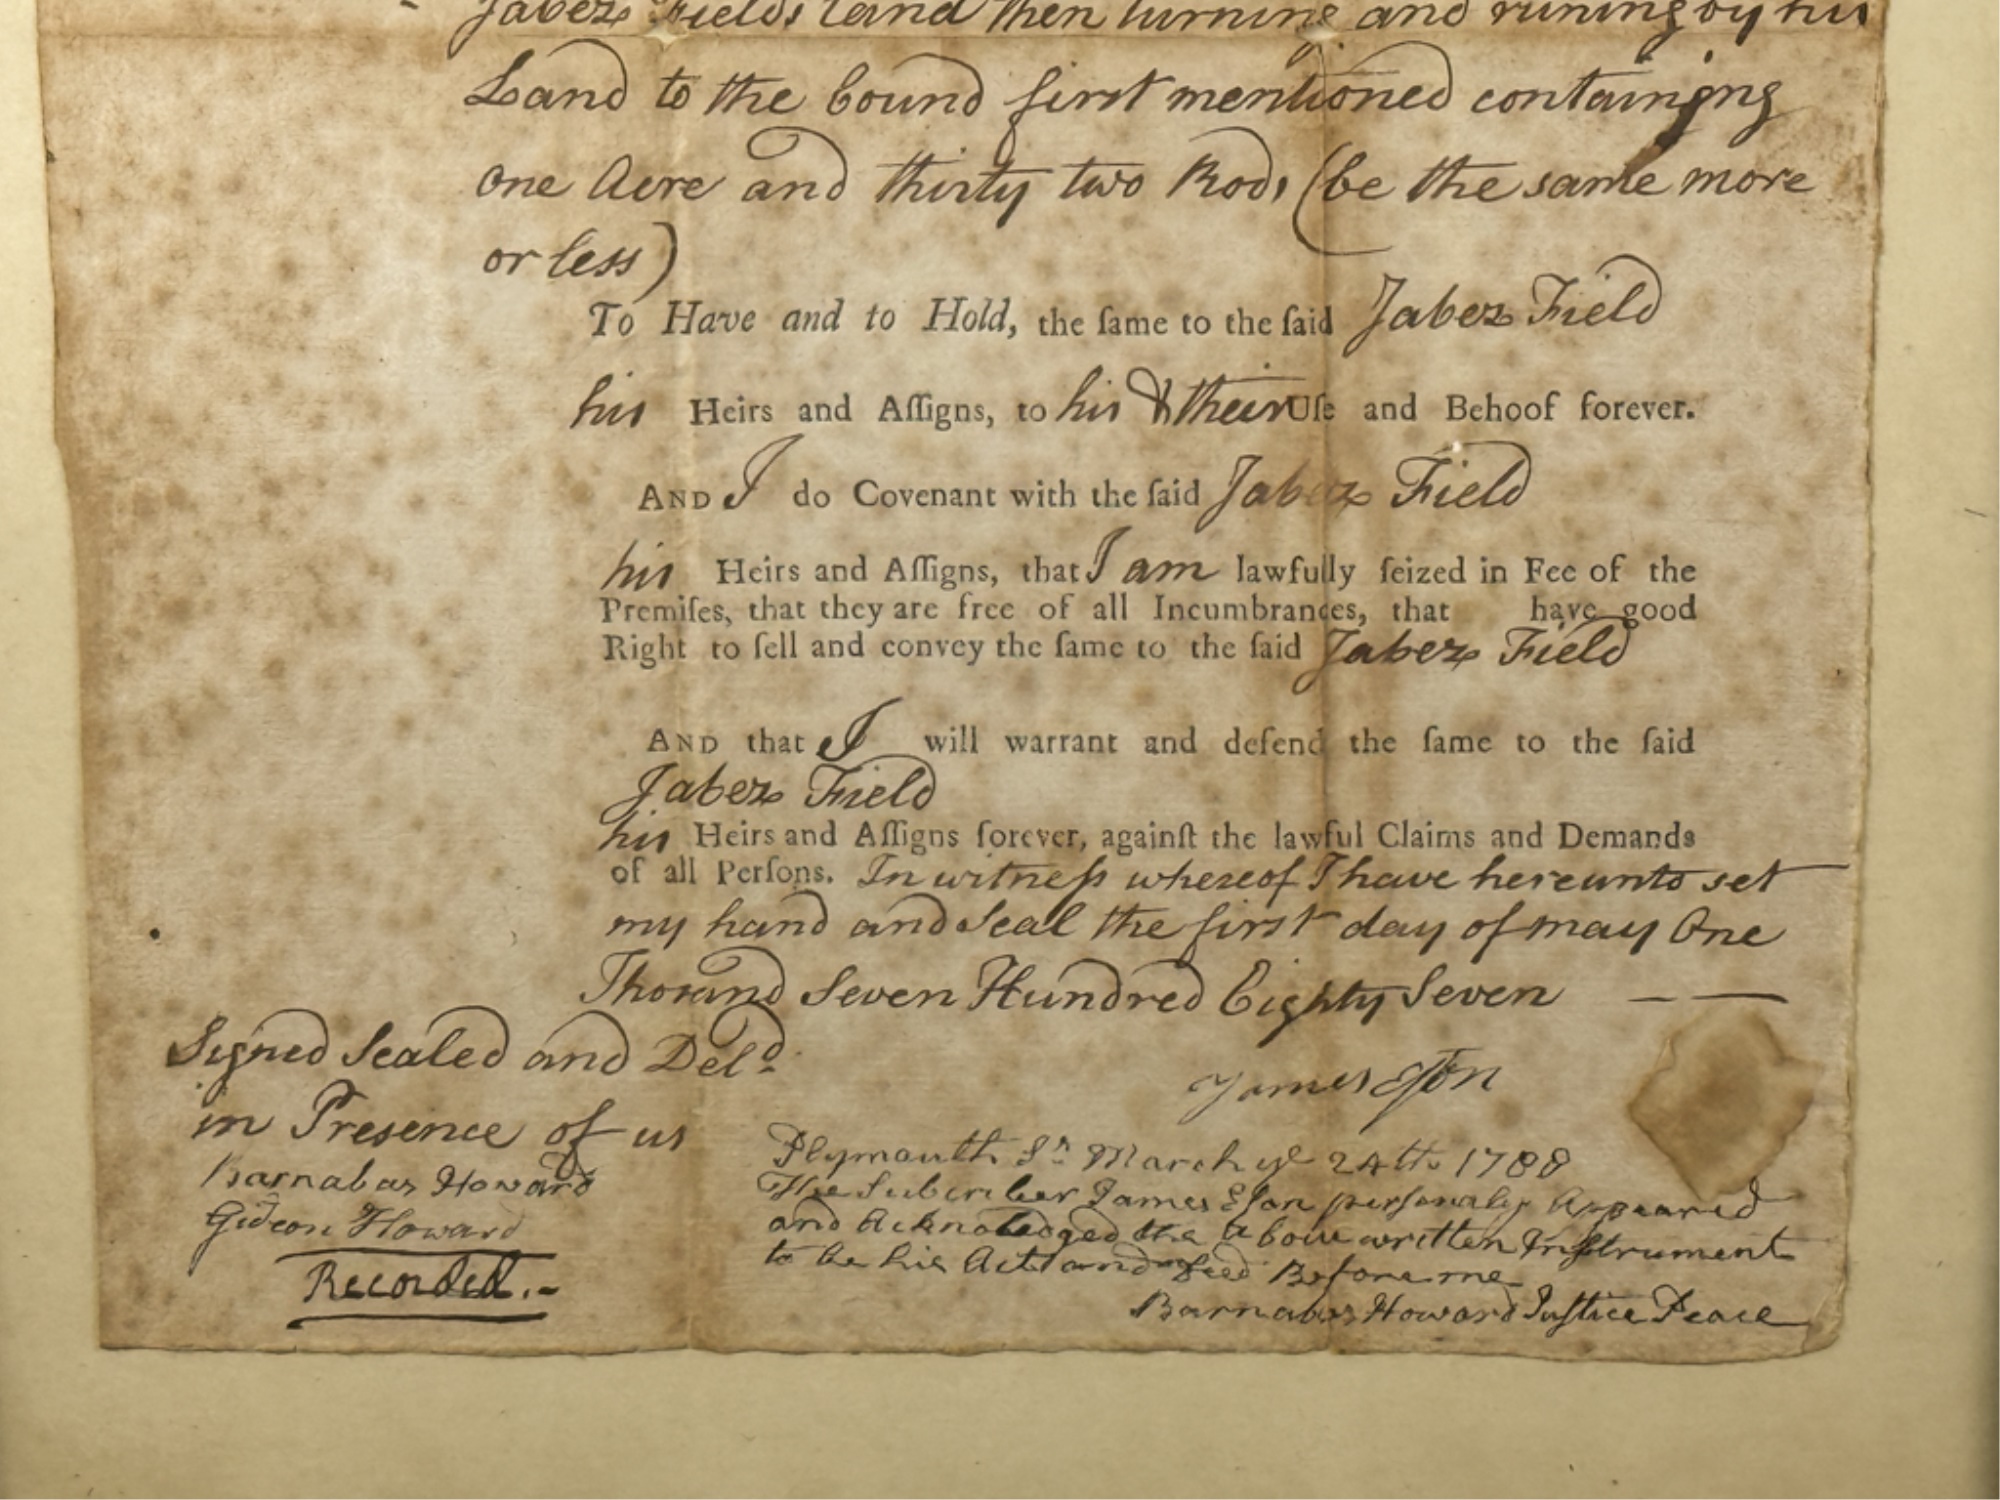 Jabez Fields land then turning and runing by his
Land to the bound first mentioned containing
one Acre and thirty two Rods (be the same more
or less)
To Have and to Hold, the ſame to the ſaid Jabez Field
his Heirs and Aſſigns, to his & their Uſe and Behoof forever.
AND I do Covenant with the ſaid Jabez Field
his Heirs and Aſſigns, that I am lawfully ſeized in Fee of the
Premiſes, that they are free of all Incumbrances, that have good
Right to ſell and convey the ſame to the ſaid Jabez Field
AND that I will warrant and defend the ſame to the ſaid
Jabez Field
his Heirs and Aſſigns forever, againſt the lawful Claims and Demands
of all Perſons. In witneſs whereof I have hereunto set
my hand and Seal the first day of may One
Thosand Seven Hundred Eighty Seven — —
Signed Sealed and Deld.
in Presence of us
Barnabas Howard
Gideon Howard
Recorded.-
James Eſon
Plymouth Ss March ye 24th 1788
The Subcriber James Eſon perſonaly Appeared
and Acknoledged the above written Inſtrument
to be his Act and Deed Before me
Barnabas Howard Juſtice Peace